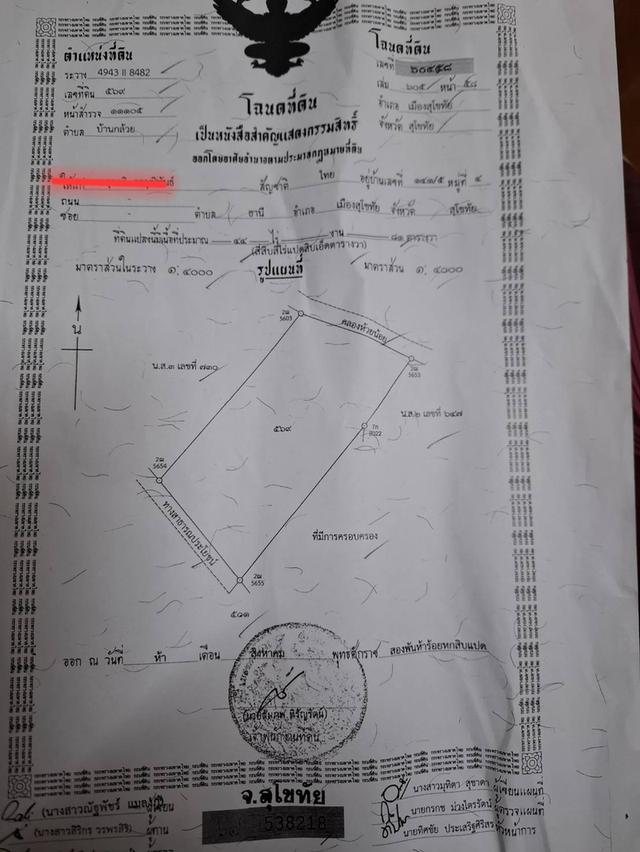 ตำแหน่งที่ดิน
ระวาง 4943 II 8482
เลขที่ดิน ๕๖๙
หน้าสำรวจ ๑๑๑๐๕
ตำบล บ้านกล้วย
โฉนดที่ดิน
เลขที่ ๖๐๕๕๘
เล่ม ๖๐๕ หน้า ๕๘
อำเภอ เมืองสุโขทัย
จังหวัด สุโขทัย
โฉนดที่ดิน
เป็นหนังสือสำคัญแสดงกรรมสิทธิ์
ออกโดยอาศัยอำนาจตามประมวลกฎหมายที่ดิน
สัญชาติ ไทย อยู่บ้านเลขที่ ๑๔๑/๕ หมู่ที่ ๔
ถนน -
ซอย - ตำบล ธานี อำเภอ เมืองสุโขทัย จังหวัด สุโขทัย
ที่ดินแปลงนี้มีเนื้อที่ประมาณ ๔๔ ไร่ - งาน ๘๑ ตารางวา
(สี่สิบสี่ไร่แปดสิบเอ็ดตารางวา)
มาตราส่วนในระวาง ๑:๔๐๐๐ รูปแผนที่ มาตราส่วน ๑:๔๐๐๐
น
2ฒ
5603
คลองห้วยน้อย
2ฒ
5653
น.ส.๓ เลขที่ ๗๓๐
น.ส.๒ เลขที่ ๖๔๗
๕๖๙
8022
2ฒ
5654
ทางสาธารณประโยชน์
ที่มีการครอบครอง
2ฒ
5655
๕๓๑
ออก ณ วันที่ ห้า เดือน สิงหาคม พุทธศักราช สองพันห้าร้อยหกสิบแปด
เจ้าพนักงานที่ดิน
จ.สุโขทัย
538218
(นางสาวณัฐพัชร์ ผู้เขียน
(นางสาวสิริกร วรพรสิริ) ผู้ทาน
นางสาวมุทิตา สุชาดา ผู้เขียนแผนที่
นายกรกช ม่วงไตรรัตน์ ผู้ตรวจแผนที่
นายทิศชัย ประเสริฐศิริสร หัวหน้าการ